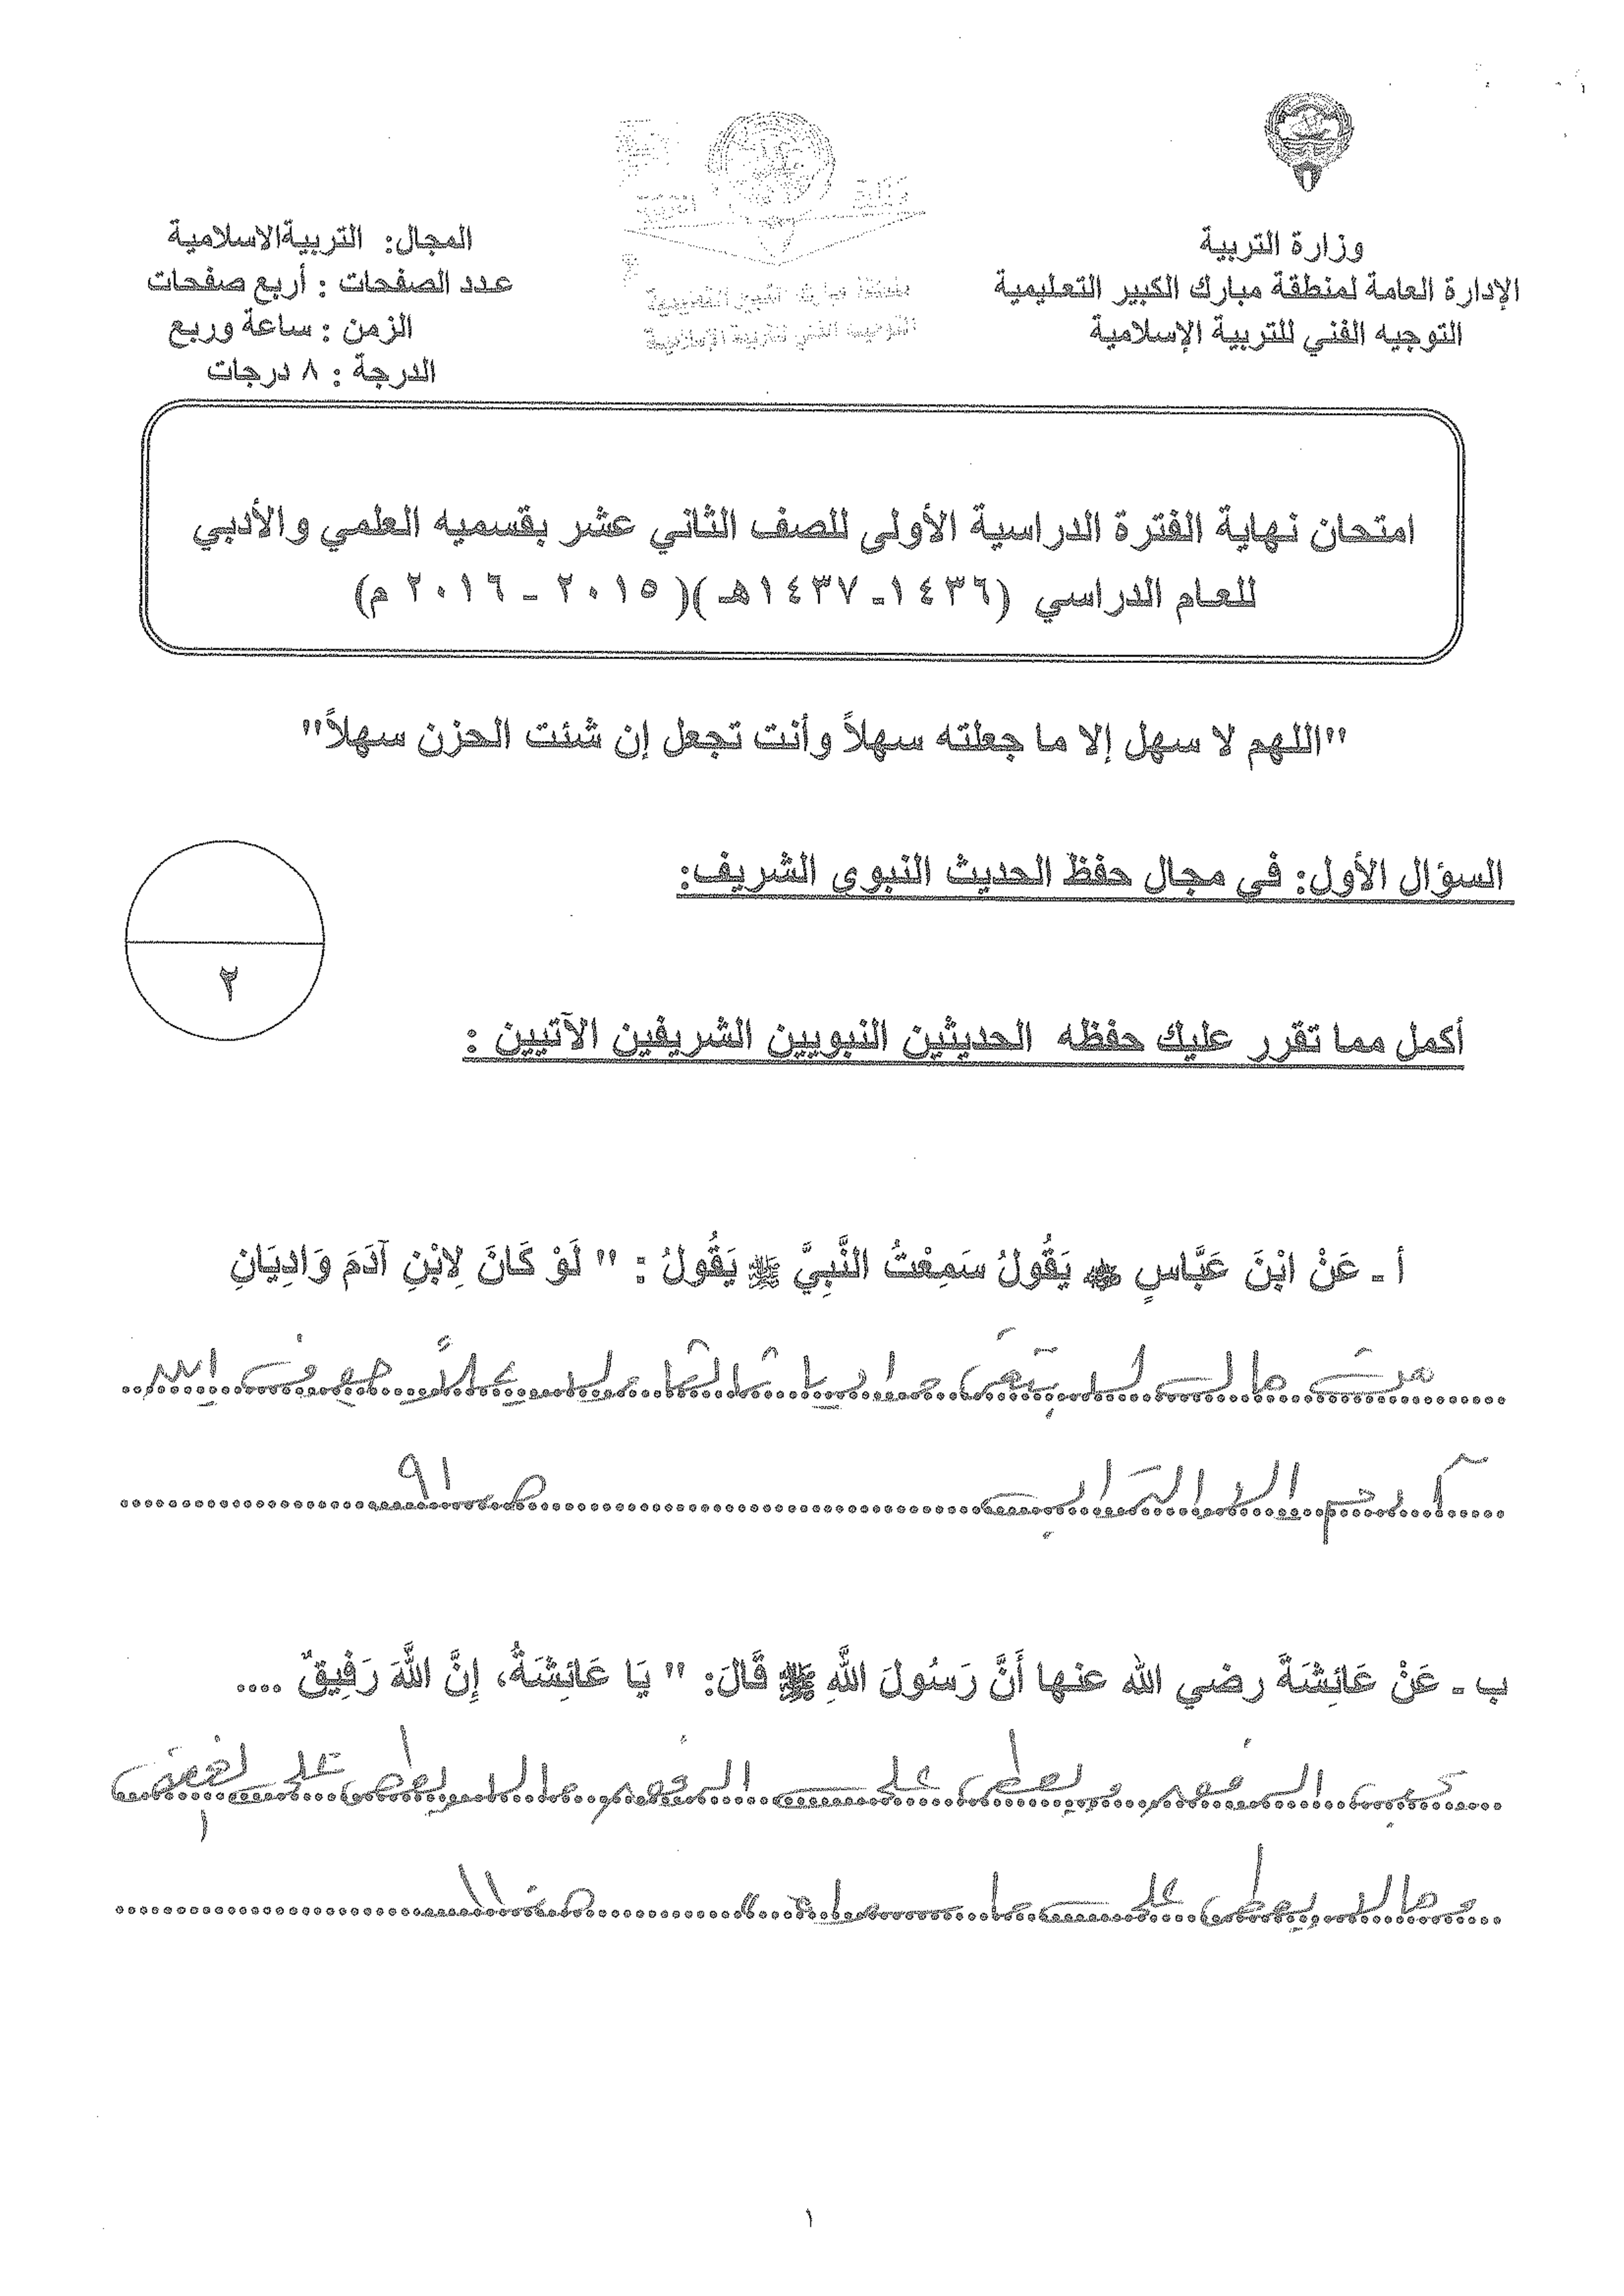 وزارة التربية
الإدارة العامة لمنطقة مبارك الكبير التعليمية
التوجيه الفني للتربية الإسلامية
المجال: التربيةالاسلامية
عدد الصفحات : أربع صفحات
الزمن : ساعة وربع
الدرجة : ٨ درجات
وزارة التربية
منطقة مبارك الكبير التعليمية
التوجيه الفني للتربية الإسلامية
امتحان نهاية الفترة الدراسية الأولى للصف الثاني عشر بقسميه العلمي والأدبي
للعام الدراسي (١٤٣٦-١٤٣٧هـ)(٢٠١٥ - ٢٠١٦ م)
"اللهم لا سهل إلا ما جعلته سهلاً وأنت تجعل إن شئت الحزن سهلاً"
السؤال الأول: في مجال حفظ الحديث النبوي الشريف:
٢
أكمل مما تقرر عليك حفظه الحديثين النبويين الشريفين الآتيين :
أ - عَنْ ابْنَ عَبَّاسٍ يَقُولُ سَمِعْتُ النَّبِيَّ ﷺ يَقُولُ : " لَوْ كَانَ لِابْنِ آدَمَ وَادِيَانِ
من مال لابتغى واديا ثالثا ولا يملأ جوف ابن
آدم إلا التراب ص٩١
ب - عَنْ عَائِشَةَ رضي الله عنها أَنَّ رَسُولَ اللَّهِ ﷺ قَالَ: " يَا عَائِشَةُ، إِنَّ اللَّهَ رَفِيقٌ ....
يحب الرفق ويعطي على الرفق مالا يعطي على العنف
ومالا يعطي على ما سواه " ص١١
١